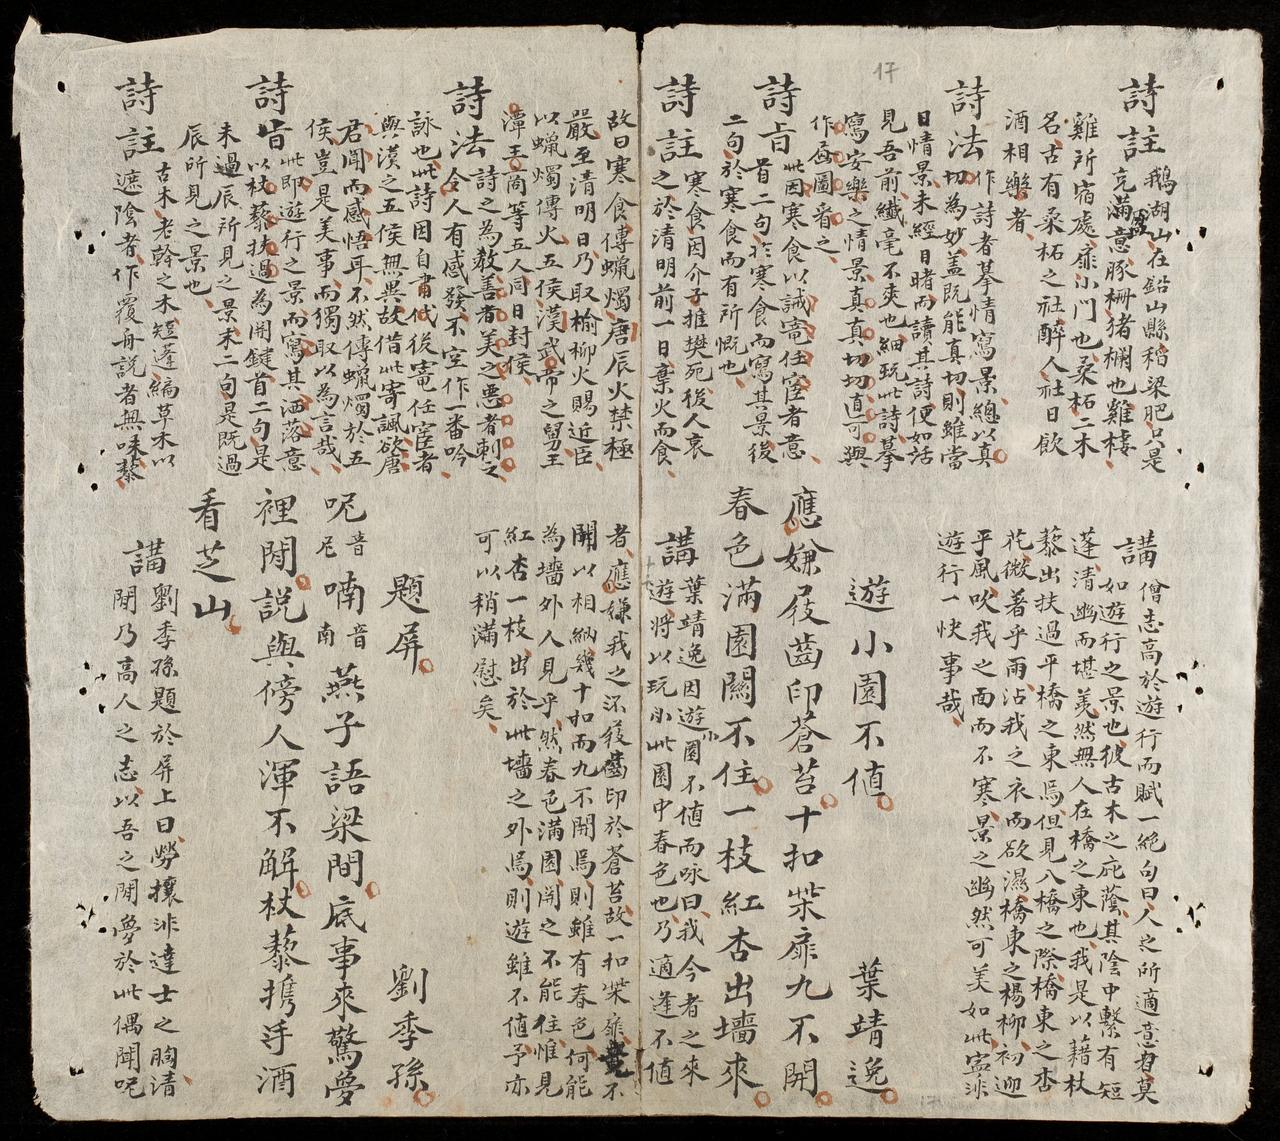 詩註 鵝湖山在鉛山縣稻梁肥只是
充滿意豚柵猪欄也雞棲
雞所宿處扉小門也桑柘二木
名古有桑柘之社醉人社日飲
酒相樂者
詩法 作詩者摹情寫景總以真
切為妙盖既能真切則雖當
日情景未經目睹而讀其詩便如活
見吾前纖毫不爽也細玩此詩摹
寫安樂之情景真真切切直可與
作画圖看之
詩旨 此因寒食以誡竉任宦者意
首二句於寒食而寫其景後
二句於寒食而有所慨也
詩註 寒食因介子推樊死後人哀
之於清明前一日棄火而食
故曰寒食傳蠟燭唐辰火禁極
嚴至清明日乃取榆柳火賜近臣
以蠟燭傳火五侯漢武帝之舅王
潭王商等五人同日封侯
詩法 詩之為教善者美之惡者刺之
令人有感發不空作一番吟
詠也此詩因自肅代後竉任宦者
與漢之五侯無異故借此寄諷欲唐
君聞而感悟耳不然傳蠟燭於五
侯豈是美事而獨取以為言哉
詩旨 此即遊行之景而寫其洒落意
以杖藜扶過為開鍵首二句是
未過辰所見之景末二句是既過
辰所見之景也
詩註 古木老幹之木短蓬編草木以
遮陰者作覆舟說者無味藜
講 僧志高於遊行而賦一絕句曰人之所適意者莫
如遊行之景也彼古木之庇蔭其陰中繫有短
蓬清幽而堪羡然無人在橋之東也我是以藉杖
藜出扶過平橋之東焉但見八橋之際橋東之杏
花微著乎雨沾我之衣而欲濕橋東之楊柳初迎
乎風吹我之面而不寒景之幽然可美如此寧非
遊行一快事哉
遊小園不値 葉靖逸
應嫌屐齒印蒼苔十扣柴扉九不開
春色滿園關不住一枝紅杏出墻來
講 葉靖逸因遊小園不値而咏曰我今者之來
遊將以玩小此園中春色也乃適逢不値
者應嫌我之沶屐齒印於蒼苔故一扣柴扉不
開以相納幾十扣而九不開焉則雖有春色何能
為墻外人見乎然春色滿園開之不能住惟見
紅杏一枝出於此墻之外焉則遊雖不値予亦
可以稍滿慰矣
題屏 劉季孫
呢音尼喃音南燕子語梁間底事來驚夢
裡閒說與傍人渾不解杖藜携手酒
看芝山
講 劉季孫題於屏上曰勞攘非達士之胸清
閒乃高人之志以吾之閒夢於此偶聞呢
17